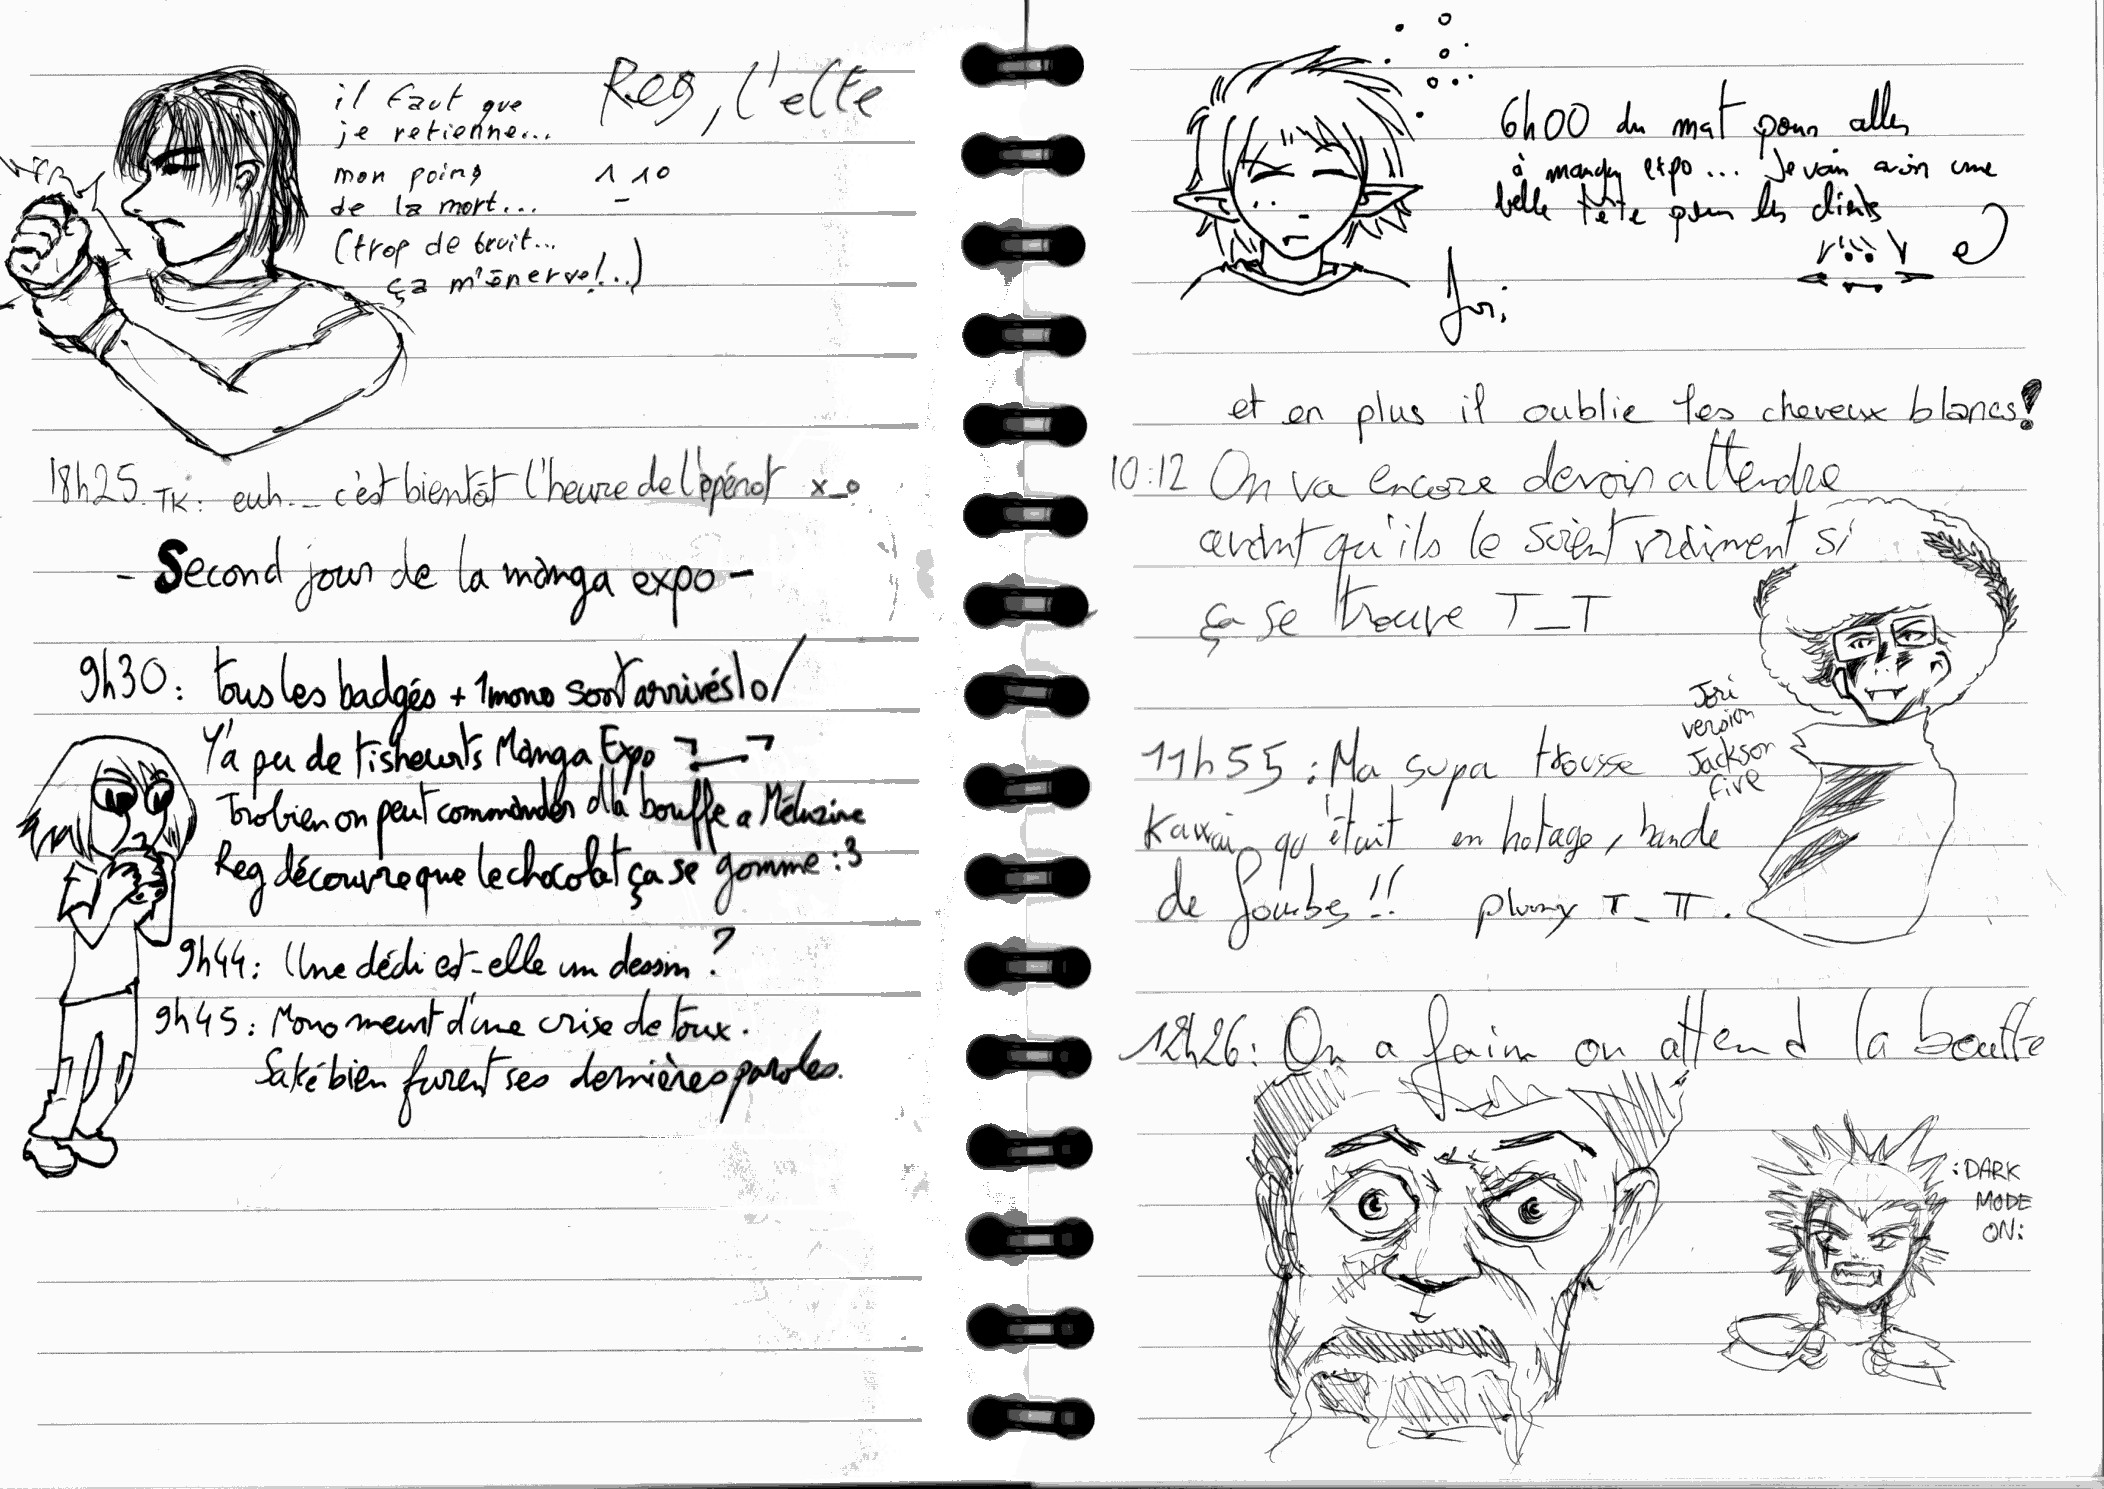 il faut que
je retienne...
mon poing
de la mort...
(trop de bruit...
ça m'énerve!..)
Reg, l'elfe
18h25. TK: euh... c'est bientôt l'heure de l'apérot x_o
- Second jour de la manga expo -
9h30: tous les badgés + 1 mono sont arrivés \o/
Y'a pu de tisheurts Manga Expo ¬_¬
Trobien on peut commander d'la bouffe a Méluzine
Reg découvre que le chocolat ça se gomme :3
9h44: Une dédi est-elle un dessin?
9h45: Mono meurt d'une crise de toux.
Saké bien furent ses dernières paroles.
6h00 du mat pour aller
à manga expo... je vais avoir une
belle tête pour les clients
Jori
et en plus il oublie les cheveux blancs!
10:12 On va encore devoir attendre
avant qu'ils le soient vraiment si
ça se trouve T_T
Jori
version
Jackson
five
11h55: Ma supa trousse
Kawai qu'était en hotage, bande
de fourbes!! T_T.
12h26: On a faim on attend la bouffe
:DARK
MODE
ON: